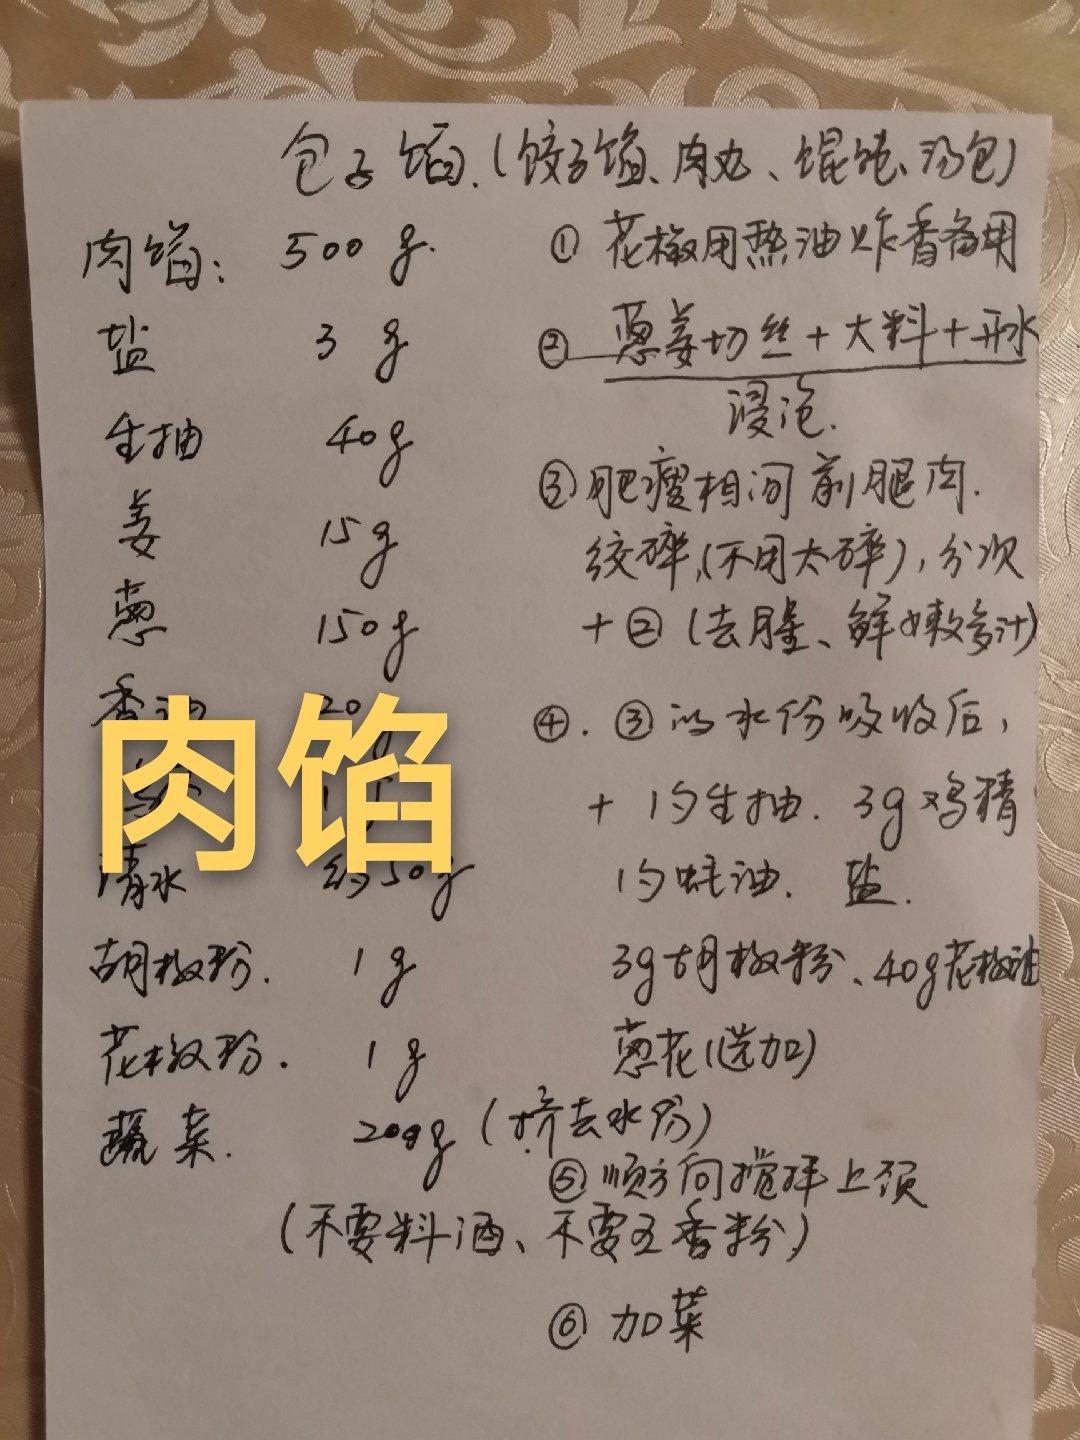 包子馅.(饺子馅、肉丸、馄饨、汤包)
肉馅: 500g.
盐 3g
生抽 40g
姜 15g
葱 150g
香油 20g
清水 约50g
胡椒粉. 1g
花椒粉. 1g
蔬菜. 200g (挤去水份)
(不要料酒、不要五香粉)
① 花椒用热油炸香备用
② 葱姜切丝+大料+开水
浸泡.
③肥瘦相间前腿肉.
绞碎,(不用太碎),分次
+② (去腥、鲜嫩多汁)
④. ③的水份吸收后,
+ 1勺生抽. 3g鸡精
1勺蚝油. 盐.
3g胡椒粉、40g花椒油
葱花(选加)
⑤顺方向搅拌上颈
⑥ 加菜
肉馅